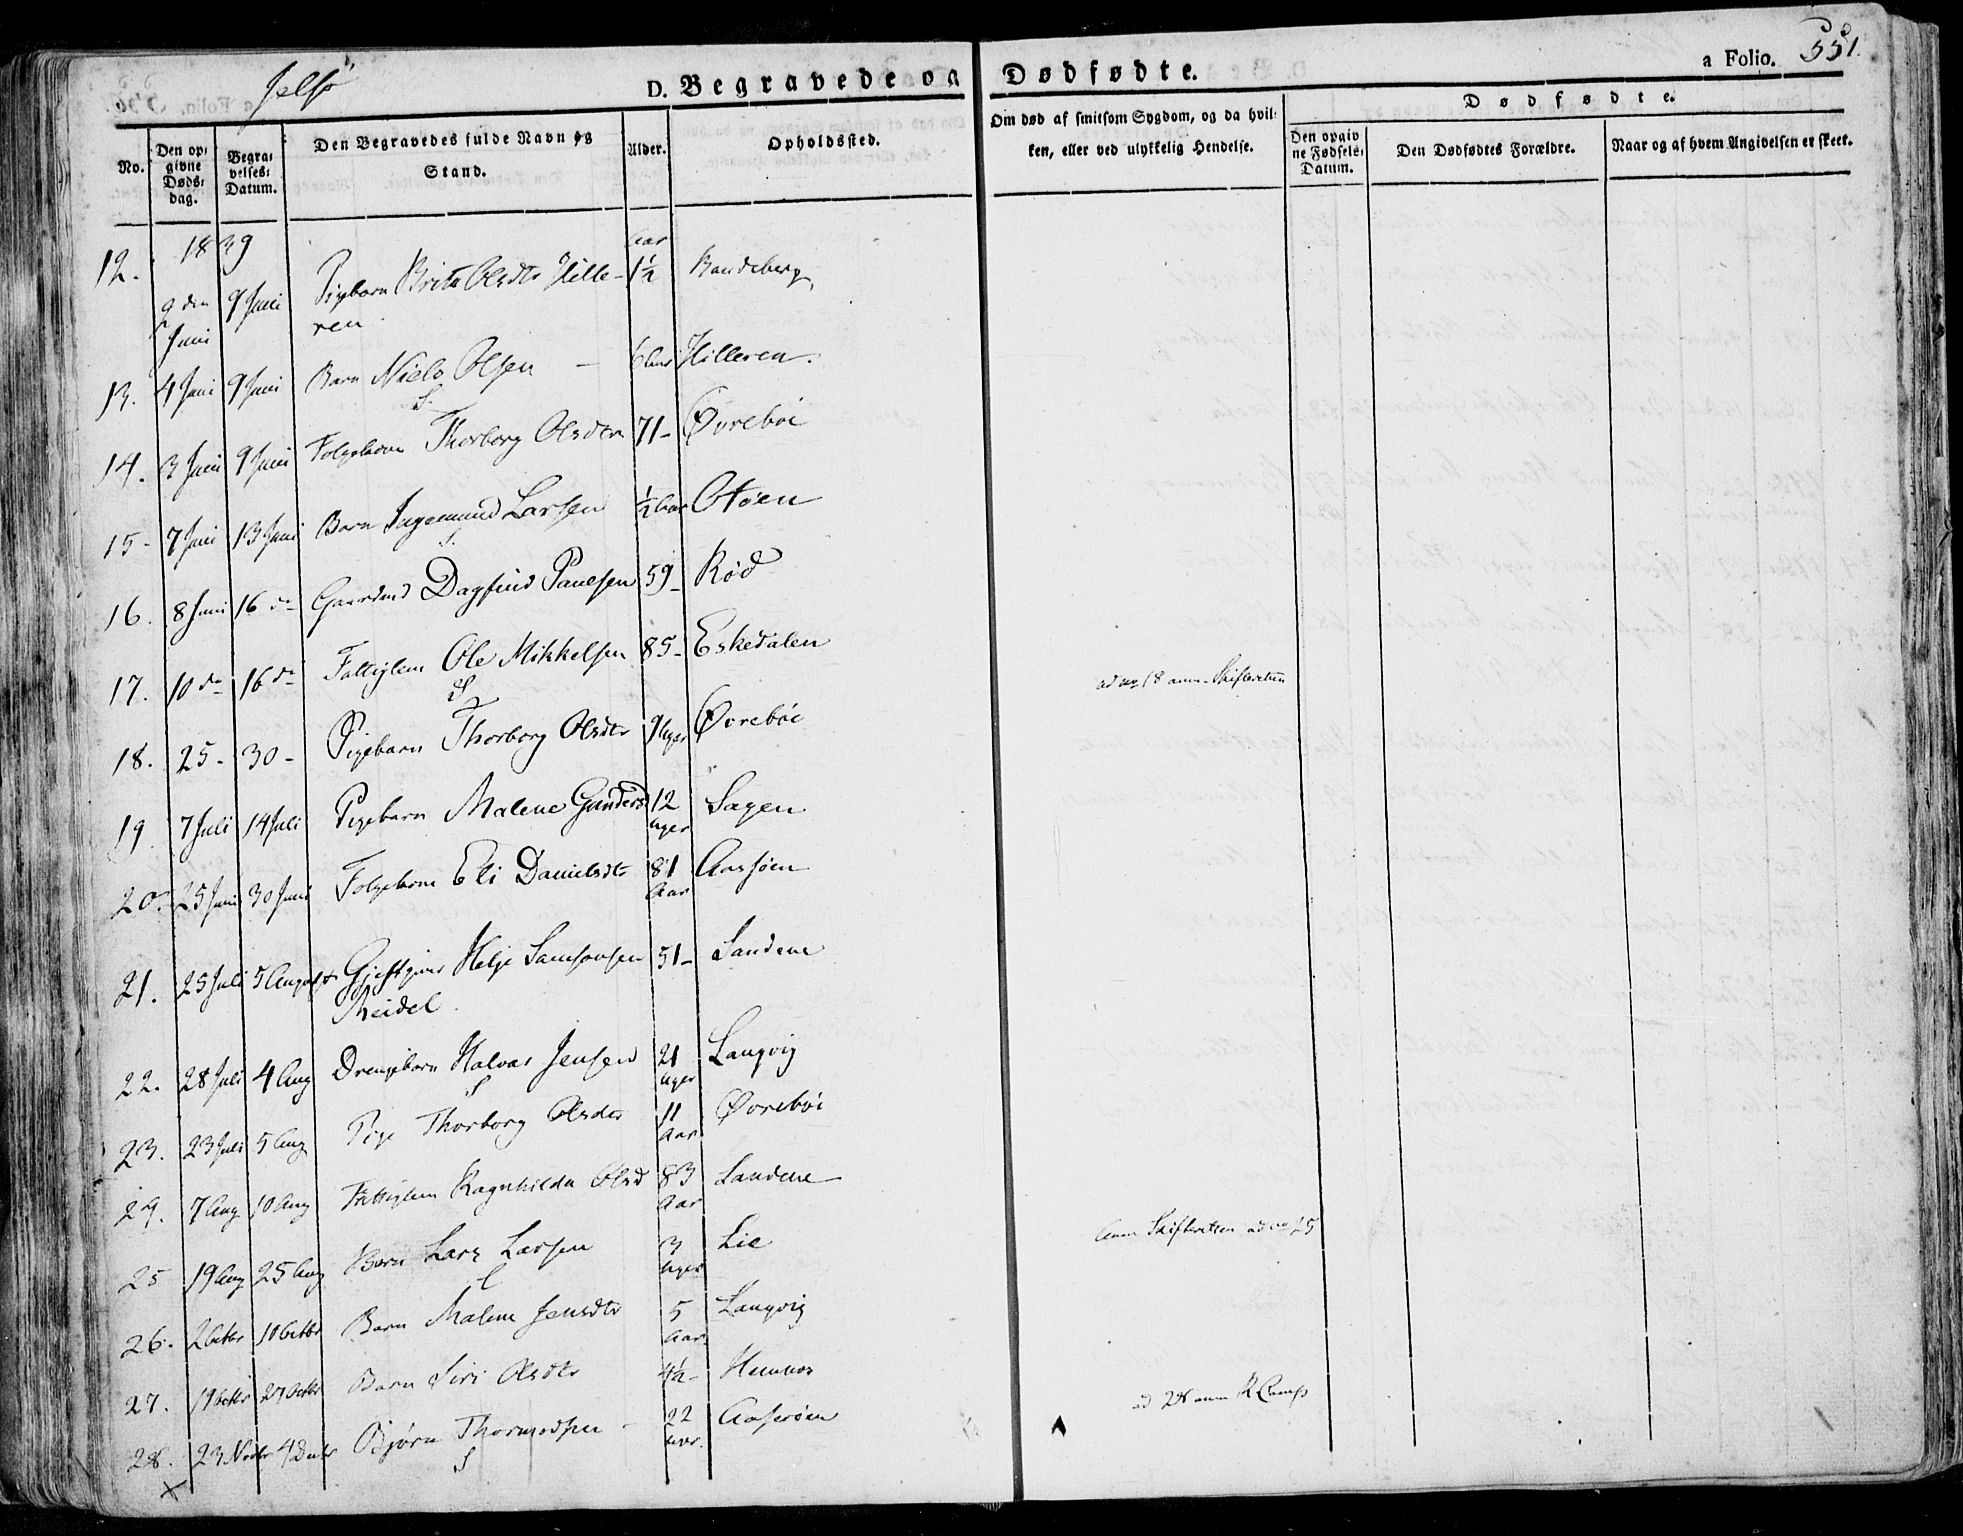 Jelsø
D. Begravede og Dødfødte.
a Folio. 551.
No.
Den opgivne Døds-dag.
Begravelses-Datum.
Den Begravedes fulde Navn og Stand.
Alder.
Opholdssted.
Om død af smitsom Sygdom, og da hvilken, eller ved ulykkelig Hendelse.
Dødfødte.
Den opgivne Fødsels-Datum.
Den Dødfødtes Forældre.
Naar og af hvem Angivelsen er skeet.
1839
12. 9 den Juni 9 Juni Pigebarn Brita Olsdtr Hilleren Aar 1½ Randeberg
13. 4 Juni 9 Juni Barn Niels Olsen – 6 Hilleren.
14. 3 Juni 9 Juni Folgekone Thorborg Olsdtr 71- Øvrebøe
15- 7 Juni 13 Juni Barn Ingemund Larsen ½ Aar Otøen
16. 8 Juni 16 do Gaardmd Dagfind Paulsen 59- Rød
17. 10 do 16 do Fattiglem Ole Mikkelsen 85- Eskedalen
18. 25- 30- Pigebarn Thorborg Olsdtr 9 Uger Øvrebøe
ad no 18 anm. Skifteretten
19 7 Juli 14 Juli Pigebarn Malene Gundersd 12 Uger Sagen
20. 25 Juni 30 Juni Folgekone Eli Danielsdtr 81 Aar
21. 25 Juli 5 August Gjestgiver Helje Samsonsen Meidel 51- Sandene
22. 28 Juli 4 Aug Drengebarn Halvar Jensen 21 Uger Langvig
23. 23 Juli 5 Aug Pige Thorborg Olsdtr 11 Aar Øvrebøe
24. 7 Aug 10 Aug Fattiglem Ragnhilda Olsd 83 Aar Sandene
25 19 Aug 25 Aug Barn Lars Larsen 3 Uger Lie
Anm Skifteretten ad no 25
26. 2 Octbr 10 Octbr Barn Malene Jensdtr 5 Aar Langvig
27. 19 Octbr 27 Octbr Barn Siri Olsdtr 4½- Hemnes
28. 23 Novbr 4 Decbr Bjørn Thormodsen – 22
ad 28 anm